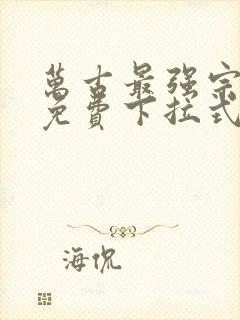 萬古最强宗
免費下拉式
海侃